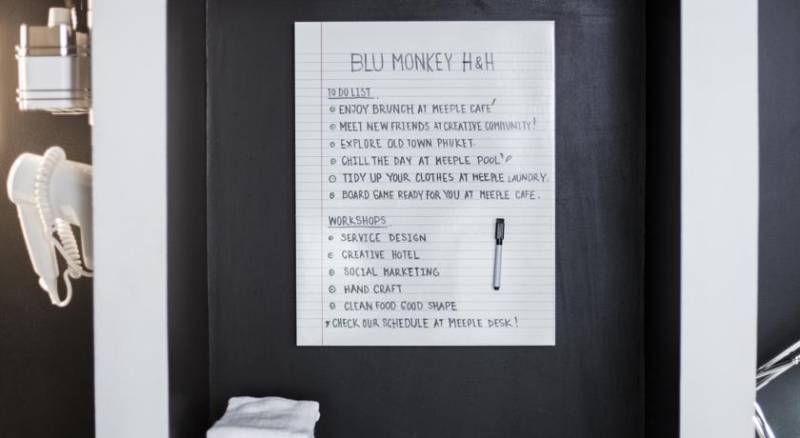 BLU MONKEY H&H
TO DO LIST
ENJOY BRUNCH AT MEEPLE CAFE'
MEET NEW FRIENDS AT CREATIVE COMMUNITY!
EXPLORE OLD TOWN PHUKET.
CHILL THE DAY AT MEEPLE POOL
TIDY UP YOUR CLOTHES AT MEEPLE LAUNDRY.
BOARD GAME READY FOR YOU AT MEEPLE CAFE.
WORKSHOPS
SERVICE DESIGN
CREATIVE HOTEL
SOCIAL MARKETING
HAND CRAFT
CLEAN FOOD GOOD SHAPE
*CHECK OUR SCHEDULE AT MEEPLE DESK!